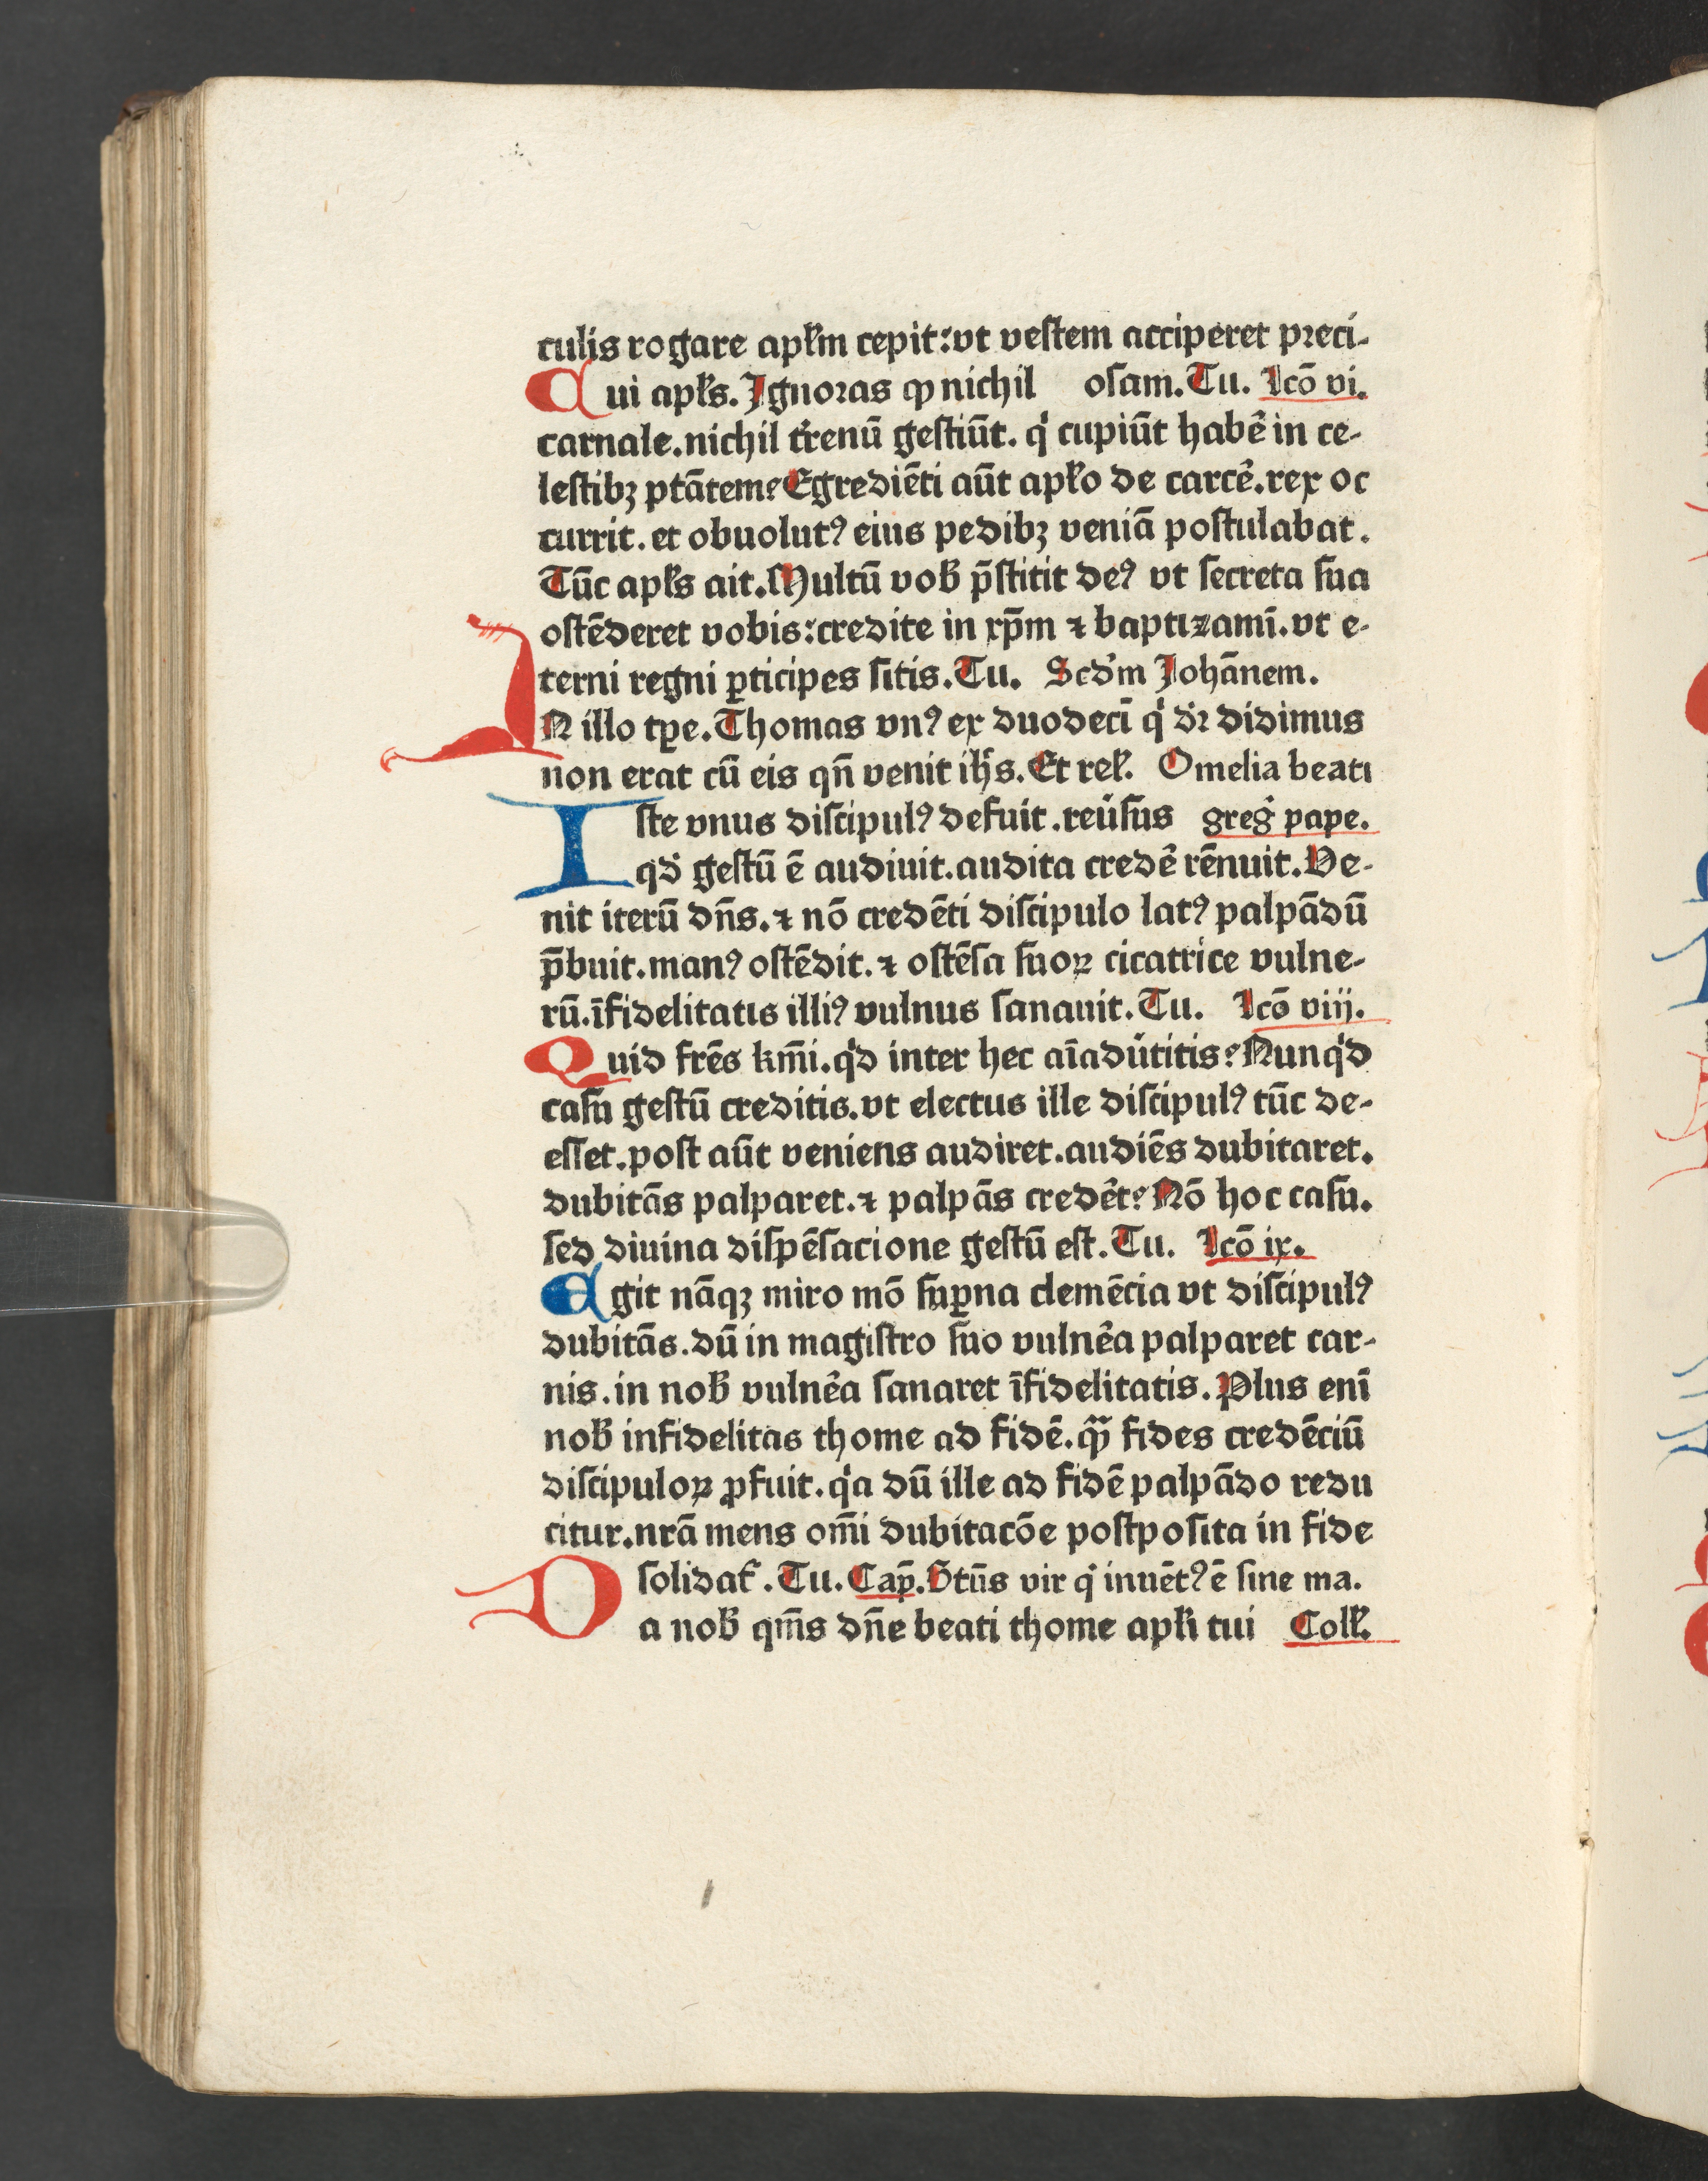 culis rogare apl̄m cepit:vt veſtem acciperet preci-
Cui apl̄s. Ignoras ꝙ nichil oſam. Tu. Lcō vi.
carnale. nichil t̉renū geſtiūt. qͥ cupiūt habe᷑ in ce-
leſtibꝫ ptātem? Egrediēti aūt apl̄o de carce᷑. rex oc
currit. et obuolutꝰ eius pedibꝫ veniā poſtulabat.
Tūc apl̄s ait. Multū vob̄ p̄ſtitit deꝰ vt ſecreta ſua
oſtēderet vobis: credite in xp̄m ⁊ baptizamī. vt e-
terni regni ꝑticipes ſitis. Tu. Scd̓m Johānem.
IN illo tꝑe. Thomas vnꝰ ex duodecī qͥ dr̄ didimus
non erat cū eis qn̄ venit ih̄s. Et rel̓. Omelia beati
Iſte vnus diſcipulꝰ defuit. reu̓ſus greg̓ pape.
qd̓ geſtū ē audiuit. audita crede᷑ rēnuit. Ve-
nit iterū dn̄s. ⁊ nō credēti diſcipulo latꝰ palpādū
p̄buit. manꝰ oſtēdit. ⁊ oſtēſa ſuoꝝ cicatrice vulne-
rū. īfidelitatis illiꝰ vulnus ſanauit. Tu. Lcō viij.
Quid frēs km̄i. qͥd inter hec aīadu̓titis? Nunqͥd
caſu geſtū creditis. vt electus ille diſcipulꝰ tūc de-
eſſet. poſt aūt veniens audiret. audiēs dubitaret.
dubitās palparet. ⁊ palpās crede᷑t? Nō hoc caſu.
ſed diuina diſpēſacione geſtū eſt. Tu. Lcō ix.
Egit nāqꝫ miro mō ſuꝑna clemēcia vt diſcipulꝰ
dubitās. dū in magiſtro ſuo vulne᷑a palparet car-
nis. in nob̄ vulne᷑a ſanaret īfidelitatis. Plus enī
nob̄ infidelitas thome ad fidē. qͣꝫ fides credēciū
diſcipuloꝝ ꝓfuit. qͥa dū ille ad fidē palpādo redu
citur. nrā mens om̄i dubitacōe poſtpoſita in fide
ſolidat᷑. Tu. Cap̄. Btūs vir qͥ inuētꝰ ē ſine ma.
Da nob̄ qm̄s dn̄e beati thome apl̄i tui Coll̓.